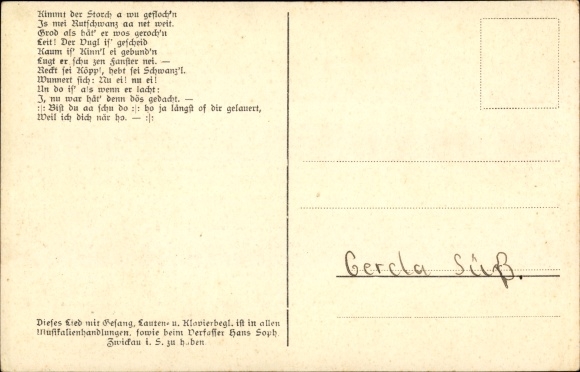 Kimmt der Storch a wu gefloch'n
Is mei Rutschwanz aa net weit.
Grod als hât' er wos geroch'n
Leit! Der Vugl is' gescheid
Kaum is' Kinn'l ei gebund'n
Lugt er schu zen Fanster nei. —
Reckt sei Köppl, hebt sei Schwanz'l.
Wunnert sich: Nu ei! nu ei!
Un do is' a's wenn er lacht:
J, nu war hât' denn dös gedacht. —
:|: Bist du aa schu do :|: ho ja längst of dir gelauert,
Weil ich dich när ho. — :|:
Gerda Süß.
Dieses Lied mit Gesang, Lauten- u. Klavierbegl. ist in allen
Musikalienhandlungen, sowie beim Verfasser Hans Soph,
Zwickau i. S. zu haben